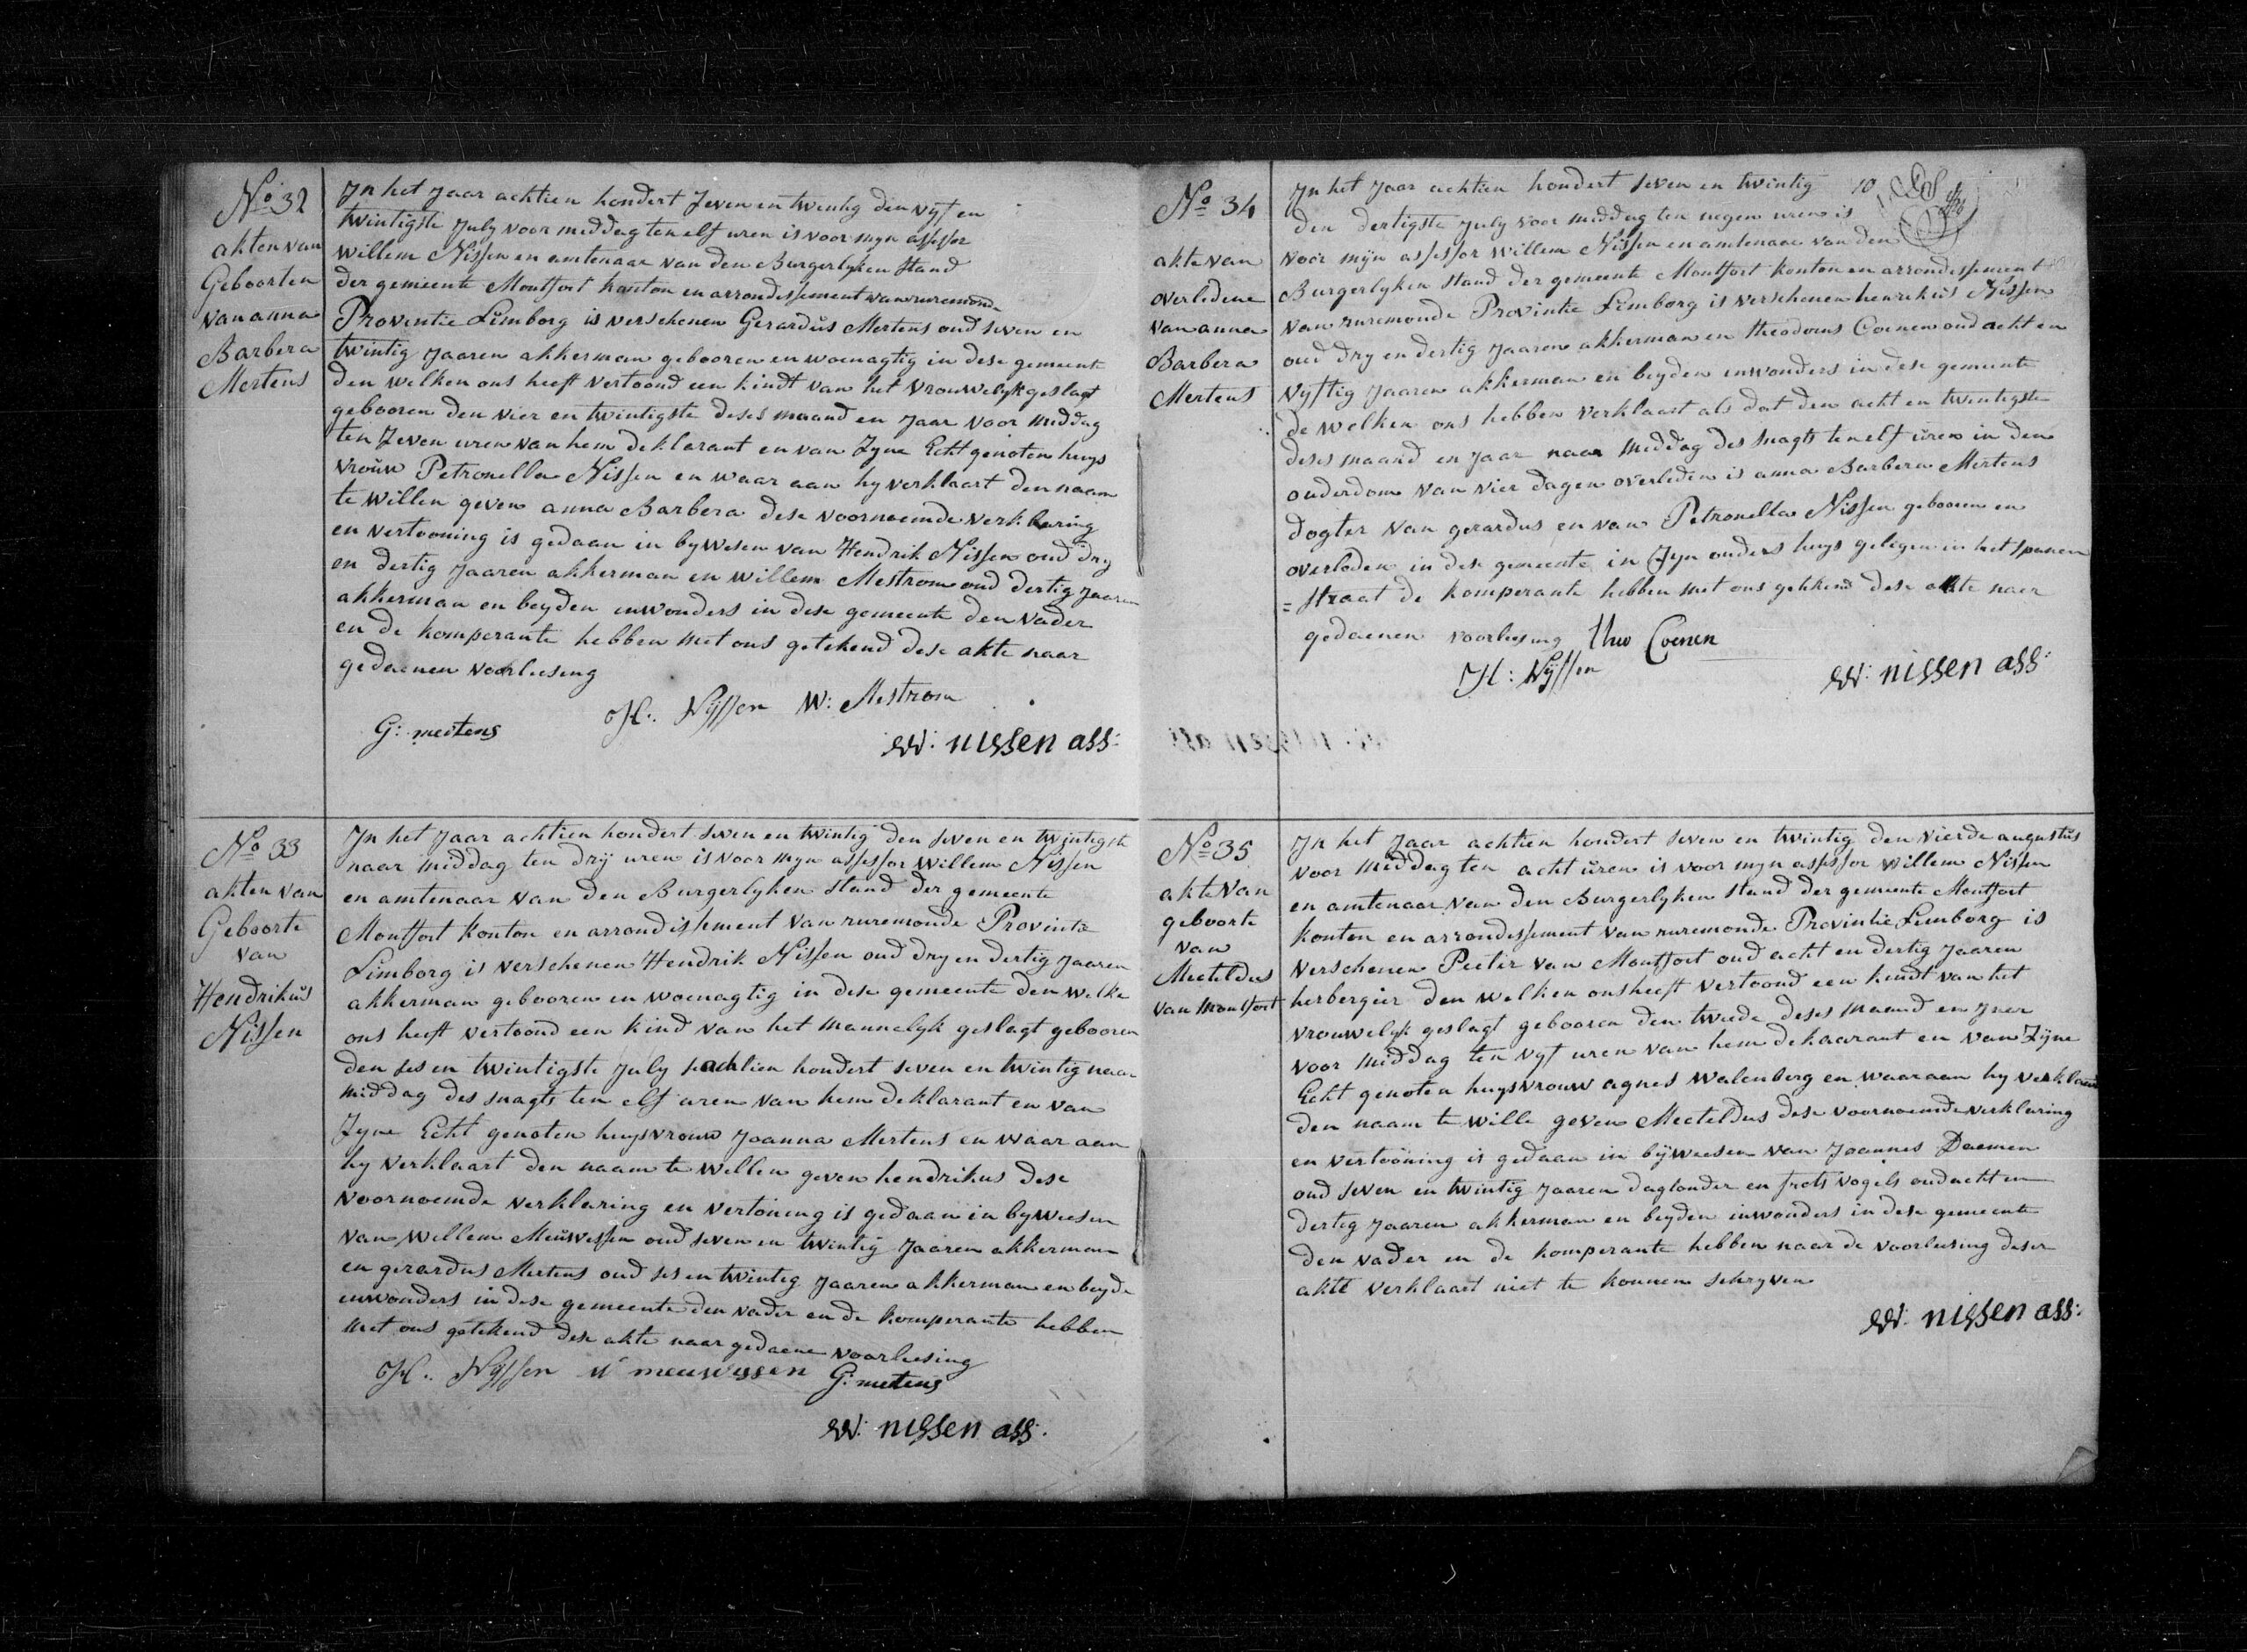 No 32
akten van
Geboorten
van anna
Barbera
Mertens
Jn het Jaar achtien hondert Zeven en twentig den vyf en
twintigste July voor middag ten elf uren is voor myn assessor
willem Nissen en amtenaar van den Burgerlyken Stand
der gemeente Montfort kanton en arrondissement van ruremonde
Proventie Limborg is verschenen Gerardus Mertens oud seven en
twintig Jaaren akkerman gebooren en woenagtig in dese gemeente
den welken ons heeft vertoond een kindt van het vrouwelyk geslagt
gebooren den vier en twintigste deses maand en Jaar voor middag
ten Zeven uren van hem deklarant en van Zyne Echt genoten huys
vrouw Petronella Nissen en waar aan hy verklaart den naam
te willen geven anna Barbera dese voornoemde verklaring
en vertooning is gedaan in bywesen van Hendrik Nissen oud dry
en dertig Jaaren akkerman en willem Mestrom oud dertig Jaaren
akkerman en beyden inwonders in dese gemeente den vader
en de komperante hebben met ons getekend dese akte naar
gedaenen voorleesing
G: mertens
H: Nijssen W: Mestrom
W: nissen ass:
No 33
akten van
Geboorte
van
Hendrikus
Nissen
Jn het Jaar achtien hondert seven en twintig den seven en twintigste
naar middag ten drij uren is voor myn assessor willem Nissen
en amtenaar van den Burgerlyken Stand der gemeente
Montfort konton en arrondissement van ruremonde Provintie
Limborg is verschenen Hendrik Nissen oud dry en dertig Jaaren
akkerman gebooren en woenagtig in dese gemeente den welke
ons heeft vertoond een kind van het mannelyk geslagt gebooren
den ses en twintigste July achtien hondert seven en twintig naar
middag des snagts ten elf uren van hem deklarant en van
Zyne Echt genoten huysvrouw Joanna Mertens en waar aan
hy verklaart den naam te wellen geven hendrikus dese
voornoemde verklaring en vertoning is gedaan in byweesen
van willem Meuwessen oud seven en twintig Jaaren akkerman
en gerardus Mertens oud ses en twinteg Jaaren akkerman en beyde
inwonders in dese gemeente den vader en de komperante hebben
met ons getekend dese akte naar gedaene voorleesing
H: Nijssen W meuwissen G: mertens
W: nissen ass:
No 34
akte van
overledene
van anna
Barbera
Mertens
10
Jn het Jaar achtien hondert seven en twintig
den dertigste July voor middag ten negen uren is
voor mijn assessor willem Nissen en amtenaar van den
Burgerlyken Stand der gemeente Montfort konton en arrondissement
van ruremonde Provintie Limborg is verschenen henrikus Nissen
oud dry en dertig Jaaren akkerman en theodorus Coenen oud acht en
vyftig Jaaren akkerman en beyden inwonders in dese gemeente
de welken ons hebben verklaart als dat den acht en twentigste
deses maand en Jaar naar middag des snagts ten elf uren in den
ouderdom van vier dagen overleden is anna Barbera Mertens
dogter van gerardus en van Petronella Nissen gebooren en
overleden in dese gemeente in Zyn ouders huys gelegen in het spanen
= straat de komperante hebben met ons gekkend dese akte naer
gedaenen voorleesing Theo Coenen
H: Nijssen
W: nissen ass:
No 35
akte van
geboorte
van
Mecteldus
van Montfort
Jn het Jaar achtien hondert seven en twintig den vierde augustus
voor middag ten acht uren is voor myn assessor willem Nissen
en amtenaar van den Burgerlyken stand der gemeente Montfort
konton en arrondissement van ruremonde Provintie Limborg is
verschenen Peeter van Montfort oud acht en dertig Jaaren
herbergier den welken ons heeft vertoond een kindt van het
vrouwelyk geslagt gebooren den twede deses maand en Jaer
voor middag ten vyf uren van hem dekaarant en van Zyne
Echt genoten huysvrouw agnes walenberg en waar aan hy verklaart
den naam te wille geven Mecteldus dese voornoemde verklaring
en vertooning is gedaan in bijweesen van Joannes Daemen
oud seven en twintig Jaaren daglonder en frots vogels oud acht en
dertig Jaaren akkerman en beyden inwonders in dese gemeente
den vader en de komperante hebben naar de voorleesing deser
akte verklaart niet te konnen schryven
W: nissen ass: